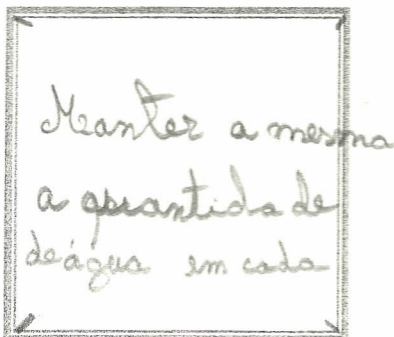 Manter a mesma
a quantidade
de água em cada